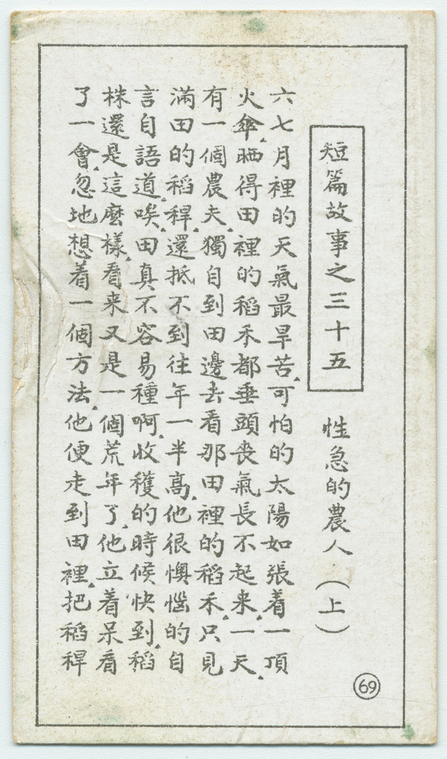 短篇故事之三十五
性急的農人(上)
六七月裡的天氣最旱苦,可怕的太陽如張着一頂
火傘,晒得田裡的稻禾都垂頭喪氣長不起來,一天,
有一個農夫,獨自到田邊去看那田裡的稻禾,只見
滿田的稻稈,還抵不到往年一半高,他很懊惱的自
言自語道,唉,田真不容易種啊,收穫的時候快到,稻
株還是這麼樣,看来又是一個荒年了,他立着呆看
了一會,忽地想着一個方法,他便走到田裡,把稻稈
69